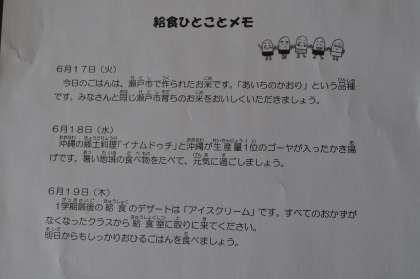 給食ひとことメモ
6月17日(火)
今日のごはんは、瀬戸市で作られたお米です。「あいちのかおり」という品種
です。みなさんと同じ瀬戸市育ちのお米をおいしくいただきましょう。
6月18日(水)
沖縄の郷土料理「イナムドゥチ」と沖縄が生産量1位のゴーヤが入ったかき揚
げです。暑い地域の食べ物をたべて、元気に過ごしましょう。
6月19日(木)
1学期最後の給食のデザートは「アイスクリーム」です。すべてのおかずが
なくなったクラスから給食室に取りに来てください。
明日からもしっかりおひるごはんを食べましょう。